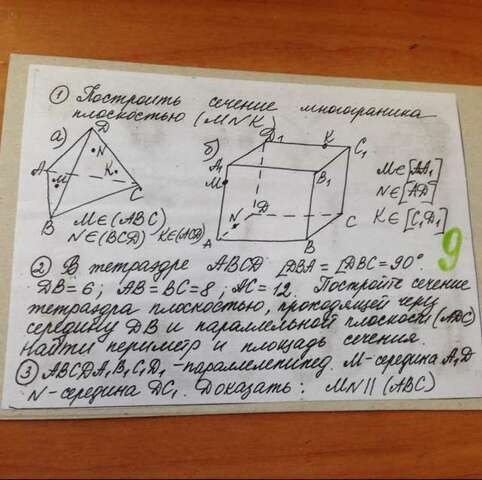 ① Построить сечение многогранника
плоскостью (MNK)
а)
D
N
A
M
K
C
B
M∈(ABC)
N∈(BCD) K∈(ACD)
б)
D₁
K
C₁
A₁
M
B₁
N
D
C
A
B
M∈[AA₁]
N∈[AD]
K∈[C₁D₁]
9
② В тетраэдре ABCD ∠DBA = ∠DBC = 90°.
DB = 6; AB = BC = 8; AC = 12. Постройте сечение
тетраэдра плоскостью, проходящей через
середину DB и параллельной плоскости (ADC)
Найти периметр и площадь сечения.
③ ABCDA₁B₁C₁D₁ - параллелепипед. M - середина A₁D
N - середина DC₁. Доказать: MN || (ABC)